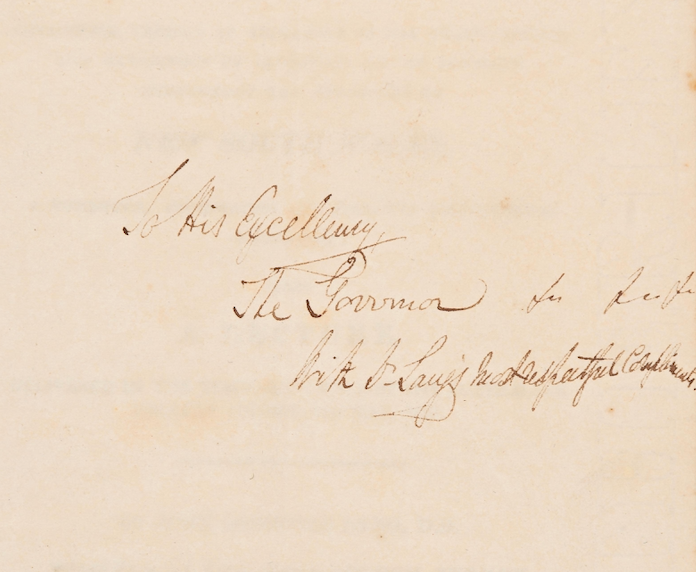 To His Excellency,
The Governor
With Dr Lang's most respectful Compliments.